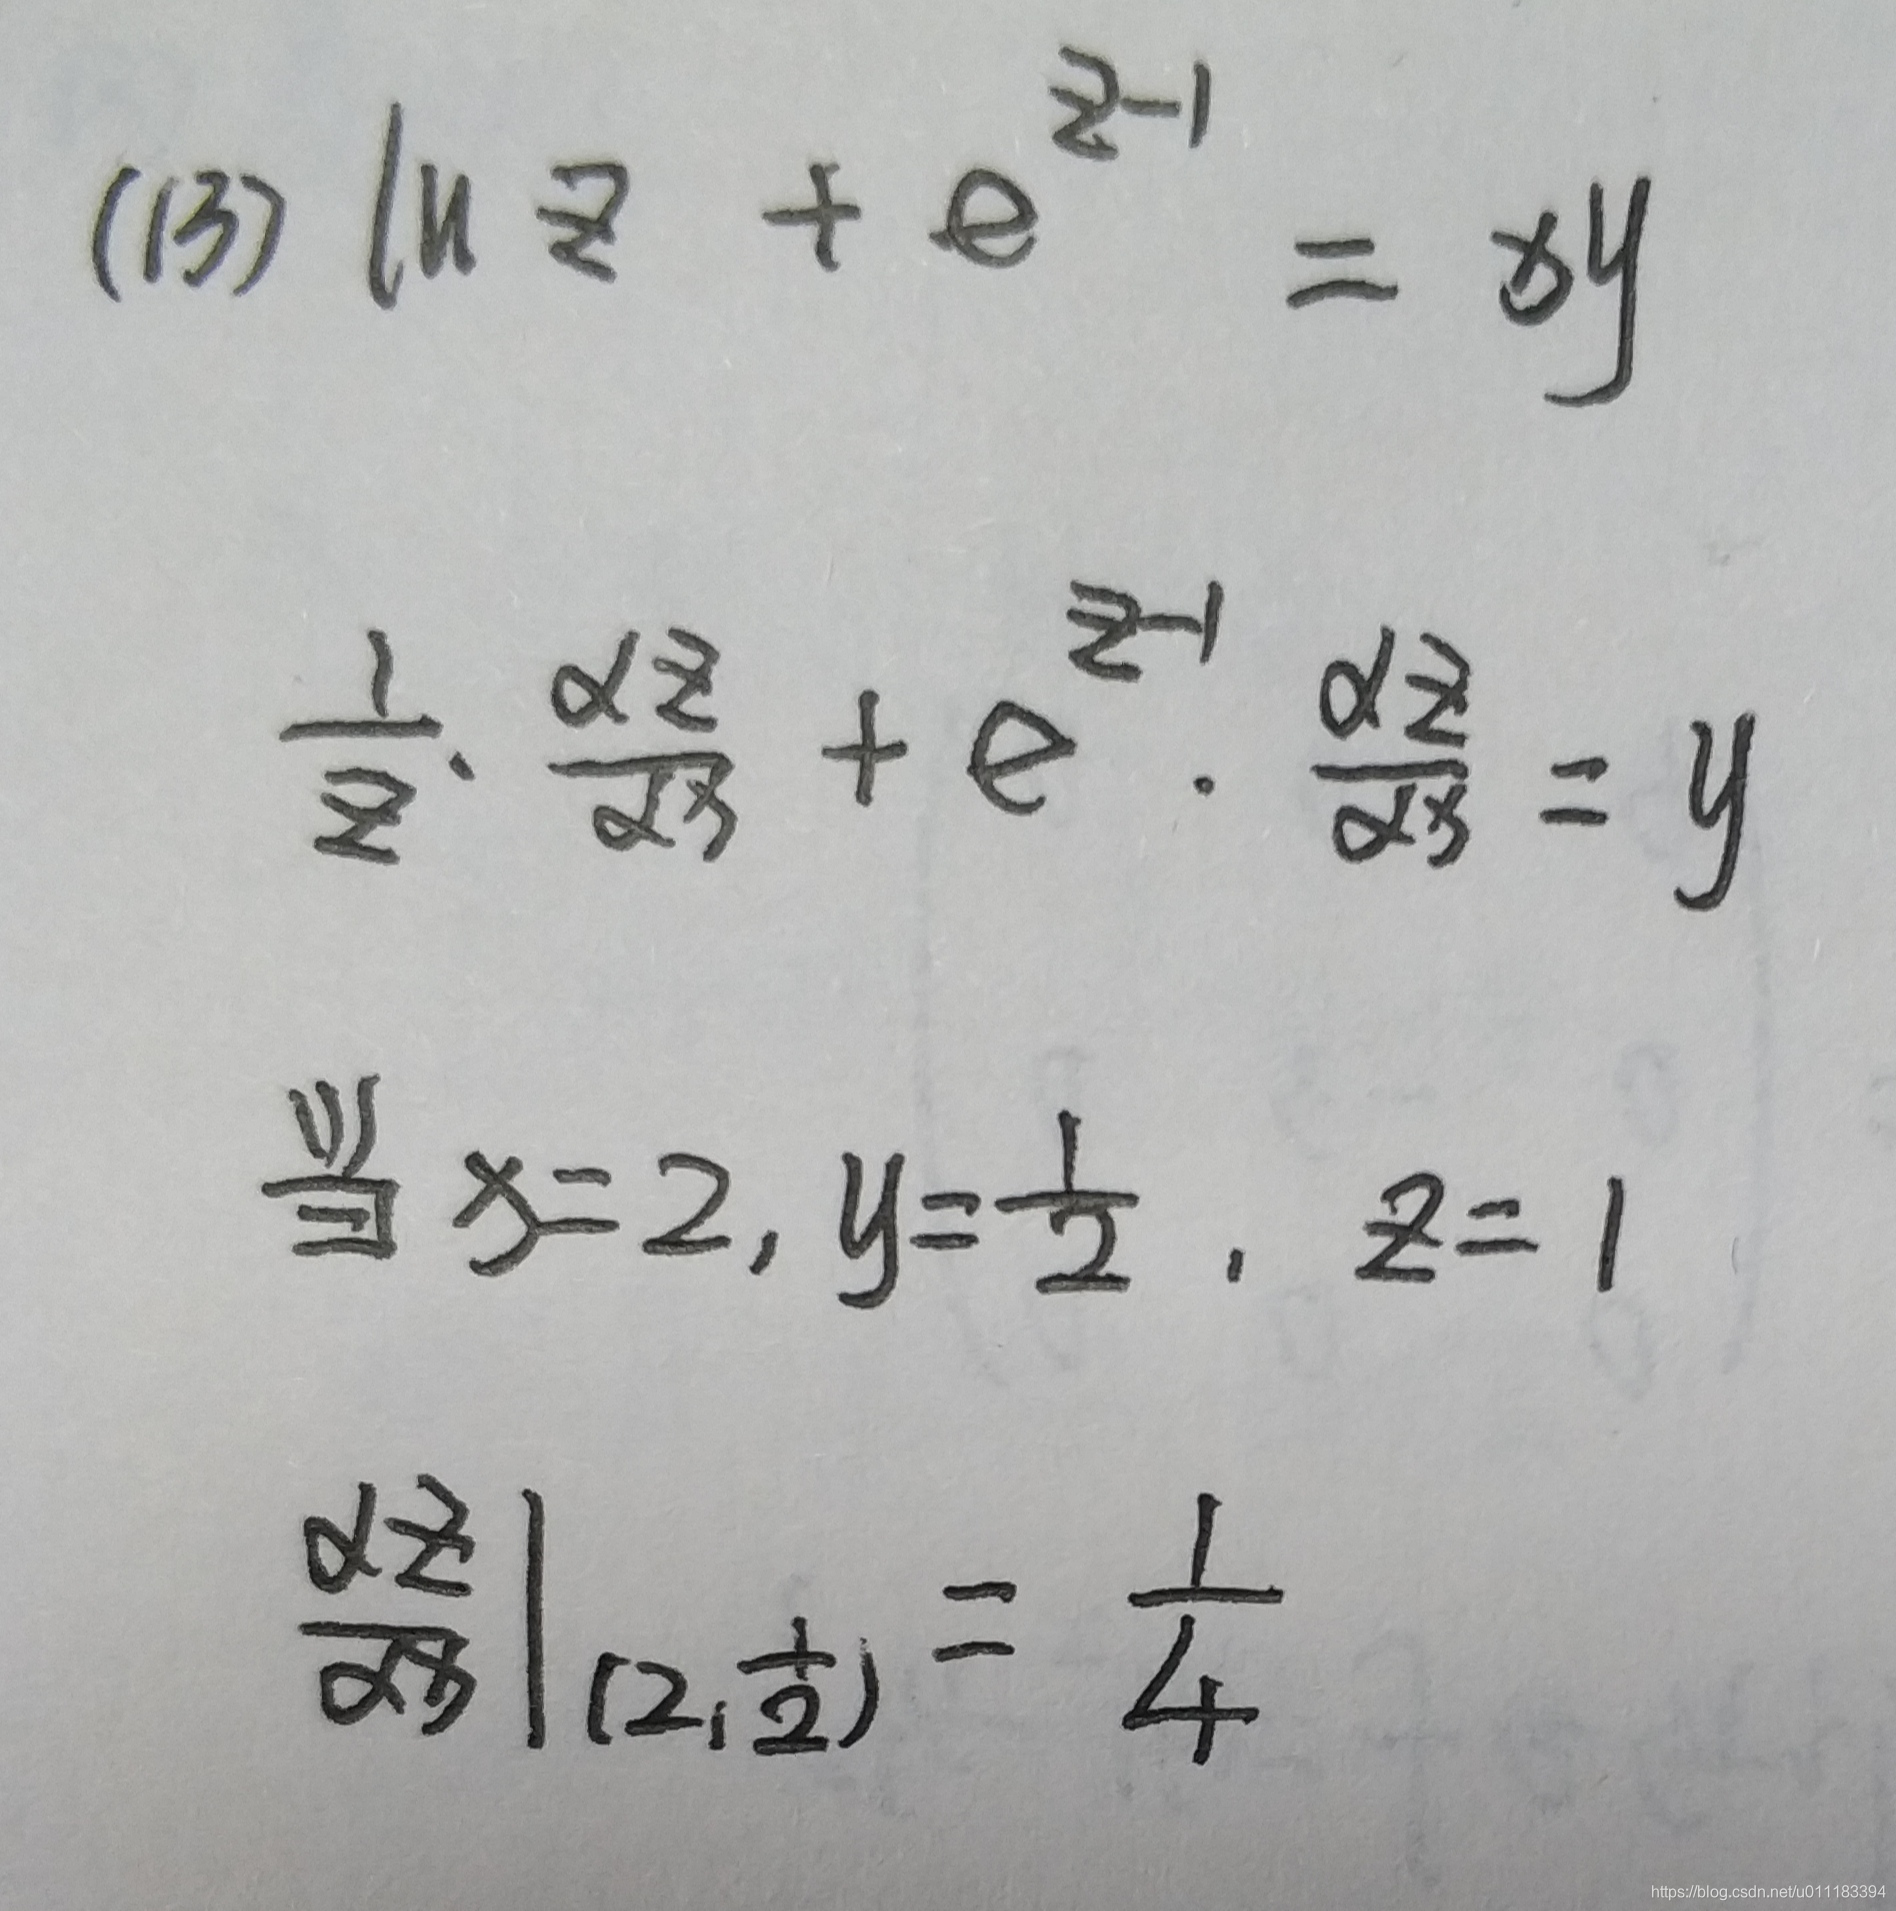 (13) ln z + e^{z-1} = xy
\frac{1}{z} · \frac{dz}{dx} + e^{z-1} · \frac{dz}{dx} = y
当 x=2, y=\frac{1}{2}, z=1
\frac{dz}{dx}|_{(2,\frac{1}{2})} = \frac{1}{4}
https://blog.csdn.net/u011183394